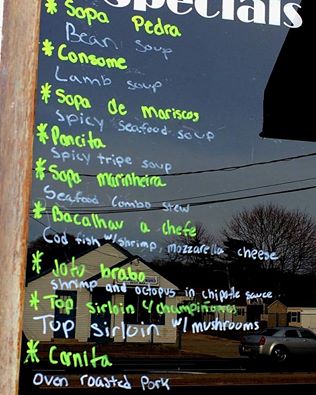 Specials
* Sopa Pedra
Bean soup
* Consome
Lamb soup
* Sopa de Mariscos
spicy seafood soup
* Pancita
Spicy tripe soup
* Sopa marinheira
Seafood combo stew
* Bacalhav a chefe
Cod fish w/shrimp, mozzarella cheese
* brabo
shrimp and octopus in chipotle sauce
* Top sirloin y champiñones
Top sirloin w/ mushrooms
* Carnita
oven roasted Pork